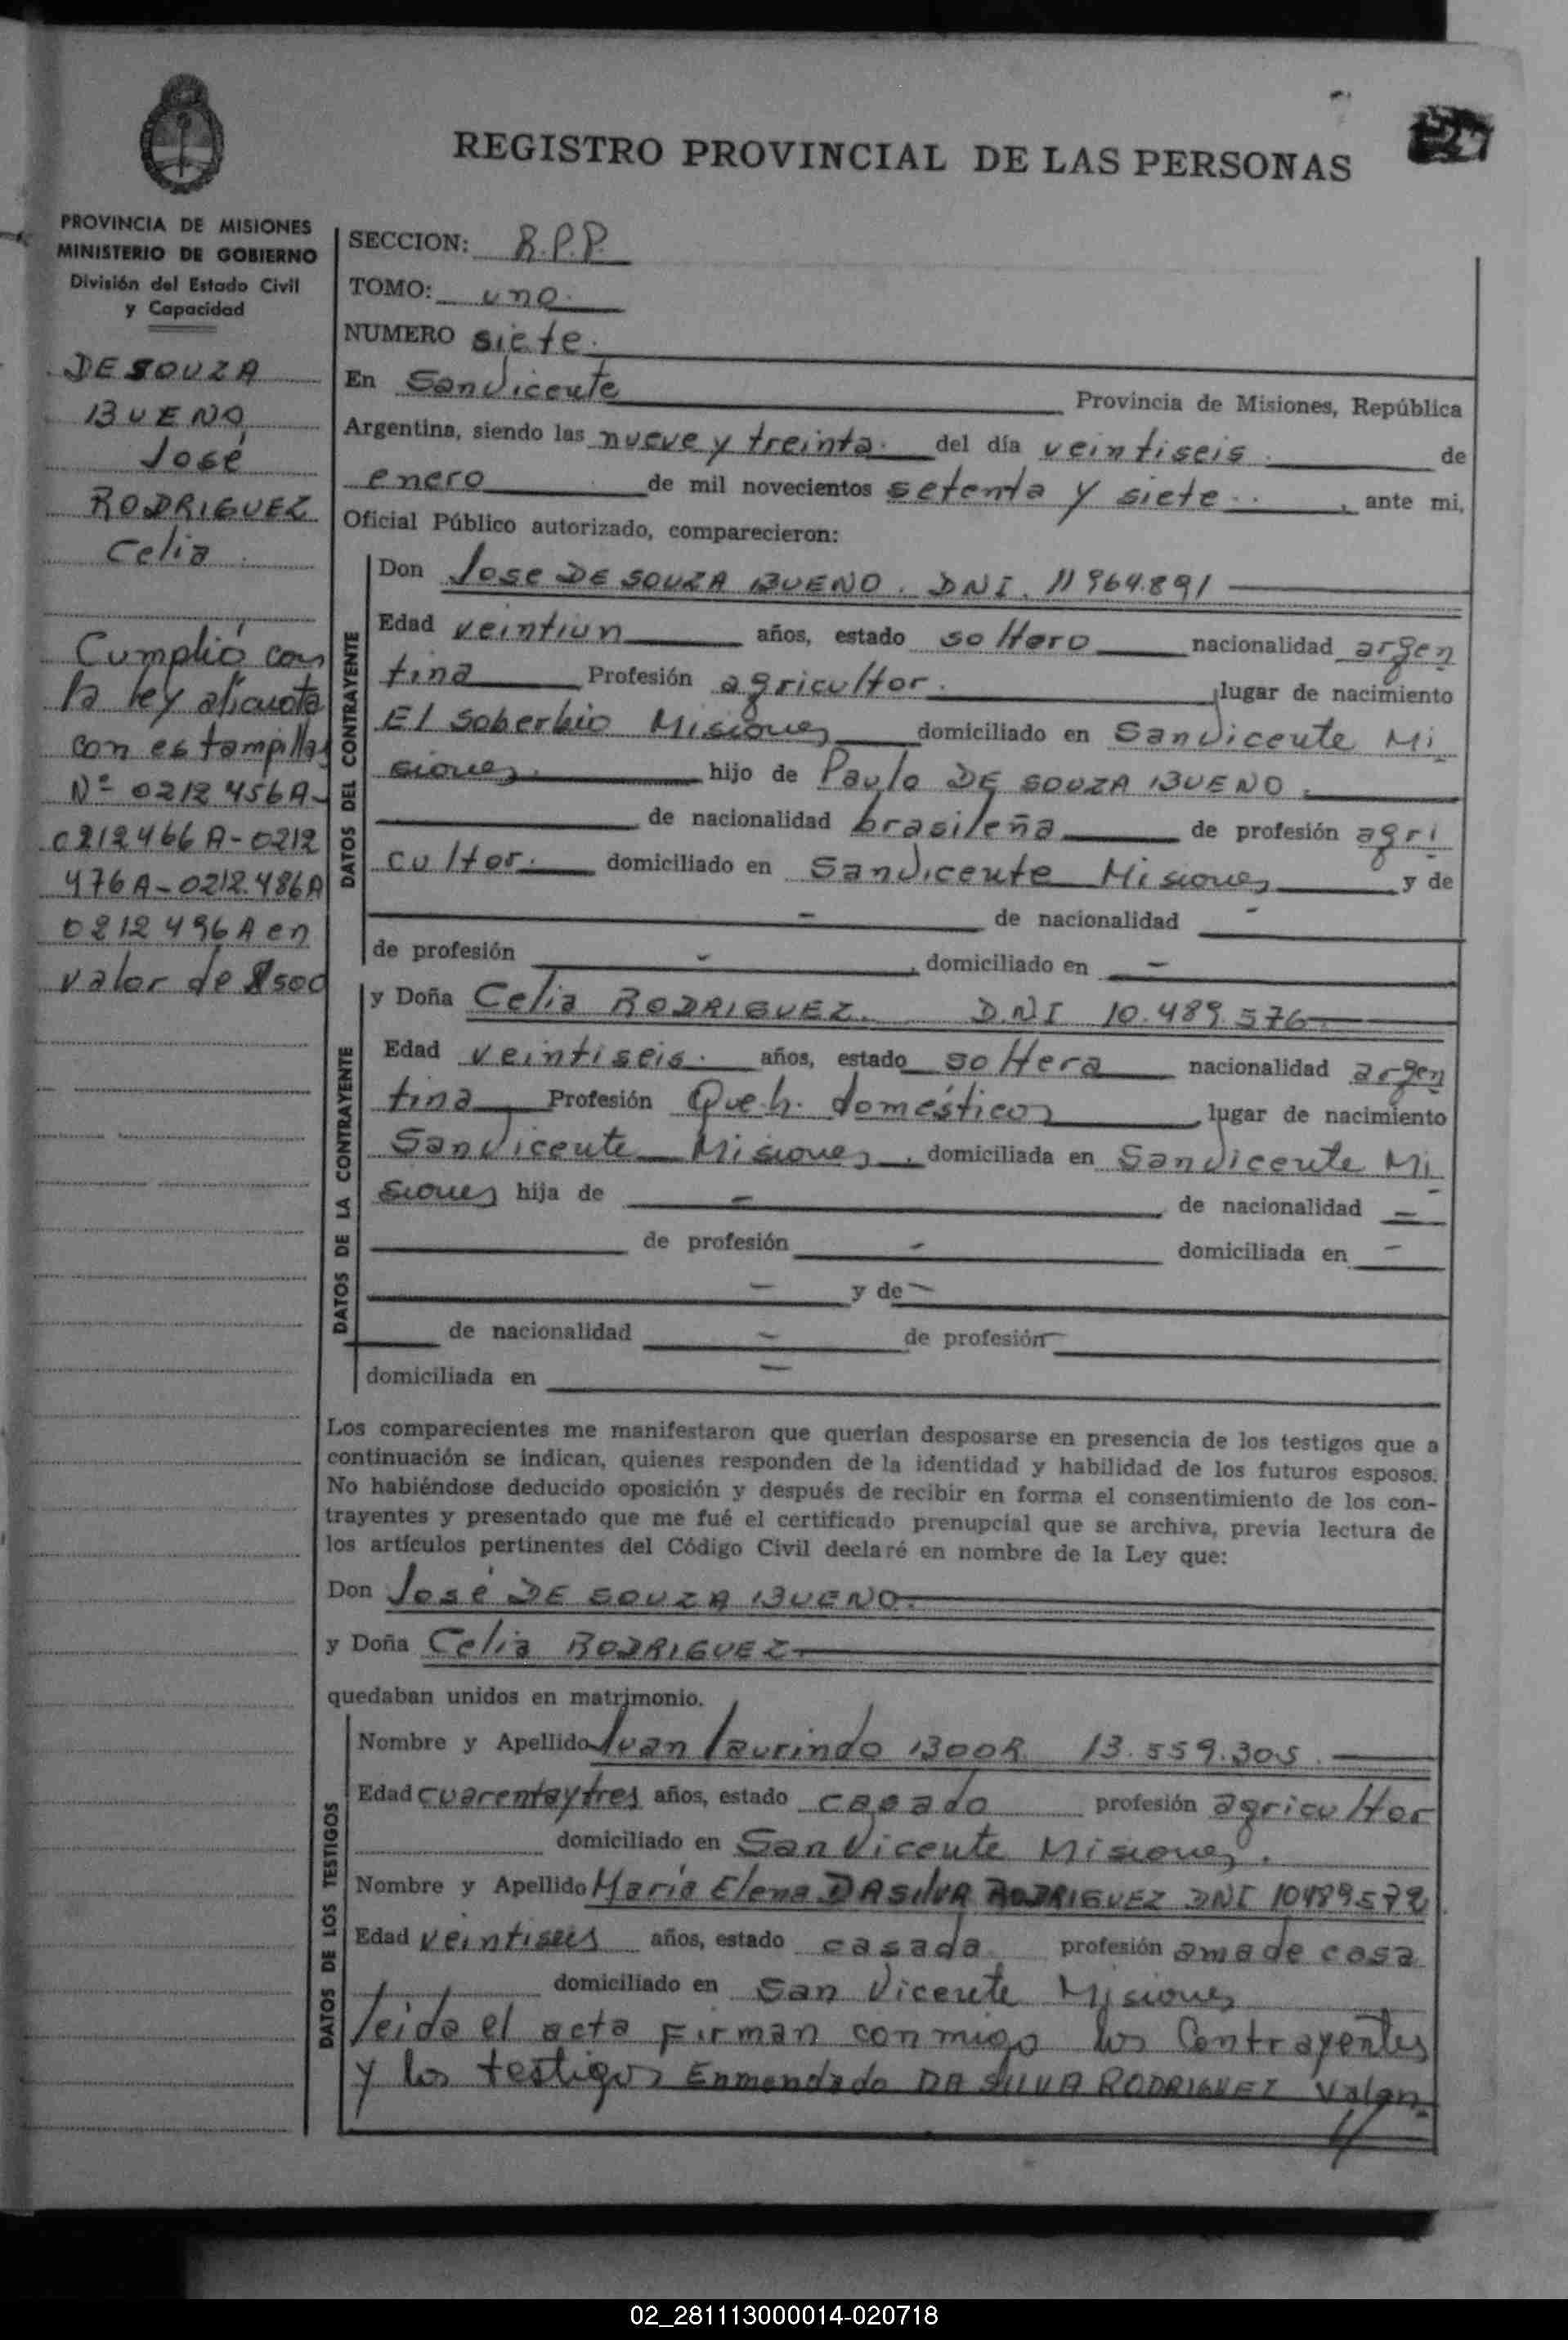 REGISTRO PROVINCIAL DE LAS PERSONAS
PROVINCIA DE MISIONES
MINISTERIO DE GOBIERNO
División del Estado Civil
y Capacidad
DE SOUZA
BUENO
José
RODRIGUEZ
Celia
Cumplió con
la ley alicuota
con estampillas
Nº 0212456A-
0212466A-0212
476A-0212.486A
0212496A en
valor de $500
SECCION: R.P.P.
TOMO: uno.
NUMERO siete.
En San Vicente Provincia de Misiones, República
Argentina, siendo las nueve y treinta. del día veintiseis. de
enero de mil novecientos setenta y siete.., ante mi,
Oficial Público autorizado, comparecieron:
DATOS DEL CONTRAYENTE
Don Jose DE SOUZA BUENO. DNI. 11964.891
Edad veintiun años, estado soltero nacionalidad argen
tina Profesión agricultor. lugar de nacimiento
El Soberbio Misiones domiciliado en San Vicente Mi
siones. hijo de Paulo DE SOUZA BUENO.
de nacionalidad brasileña de profesión agri
cultor. domiciliado en San Vicente Misiones y de
- de nacionalidad -
de profesión -, domiciliado en -
DATOS DE LA CONTRAYENTE
y Doña Celia RODRIGUEZ. D.N.I 10.489.576
Edad veintiseis. años, estado soltera nacionalidad argen
tina Profesión Queh. domésticos, lugar de nacimiento
San Vicente Misiones, domiciliada en San Vicente Mi
siones hija de - de nacionalidad -
de profesión - domiciliada en -
- y de -
de nacionalidad - de profesión
domiciliada en -
Los comparecientes me manifestaron que querían desposarse en presencia de los testigos que a
continuación se indican, quienes responden de la identidad y habilidad de los futuros esposos.
No habiéndose deducido oposición y después de recibir en forma el consentimiento de los con-
trayentes y presentado que me fué el certificado prenupcial que se archiva, previa lectura de
los artículos pertinentes del Código Civil declaré en nombre de la Ley que:
Don José DE SOUZA BUENO.
y Doña Celia RODRIGUEZ
quedaban unidos en matrimonio.
DATOS DE LOS TESTIGOS
Nombre y Apellido Juan Laurindo BOOR 13.559.305.
Edad cuarentaytres años, estado casado profesión agricultor
domiciliado en San Vicente Misiones.
Nombre y Apellido María Elena DA SILVA RODRIGUEZ DNI 10489572
Edad veintiseis años, estado casada profesión ama de casa
domiciliado en San Vicente Misiones
leida el acta Firman conmigo los Contrayentes
y los testigos Enmendado DA SILVA RODRIGUEZ Valen.
02_281113000014-020718